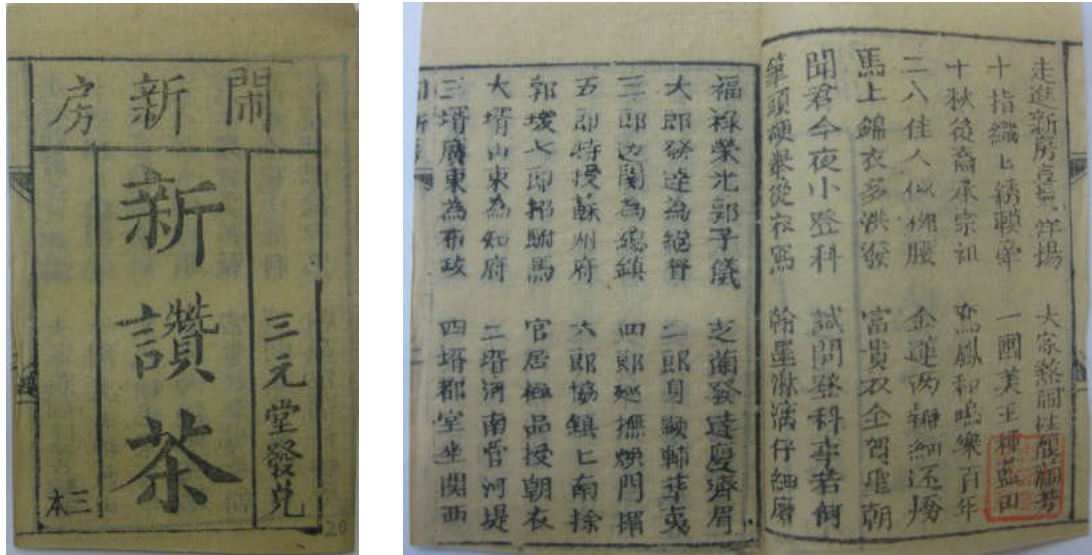 閙新房
三元堂發兌
新讚茶
三本
20
走進新房喜氣 揚 大家
十指纖匕綉 一團美玉種藍田
十秋後裔承宗祖 鸞鳳和鳴樂百年
二八佳人似柳腰 金蓮两瓣細还嬌
馬上錦衣多洪發 富貴衣全賀聖朝
聞君今夜小登科 試問登科事若何
筆頭硬 從君寫 翰墨淋漓仔細磨
福禄榮光郭子儀 芝蘭發達慶齊眉
大郎發達為總督 二郎 輔華夷
三郎边関為總鎮 四郎廵撫焕門楣
五郎特授蘇州府 六郎協鎮匕南徐
郭 七郎招駙馬 官居極品授朝衣
大壻山東為知府 二壻河南管河堤
三壻廣東為布政 四壻都室坐関西